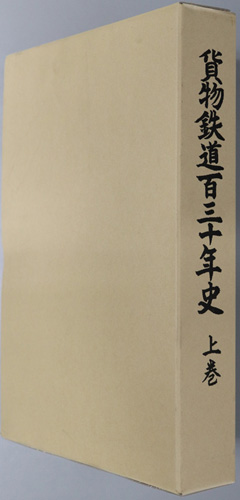 貨物鉄道百三十年史 上巻